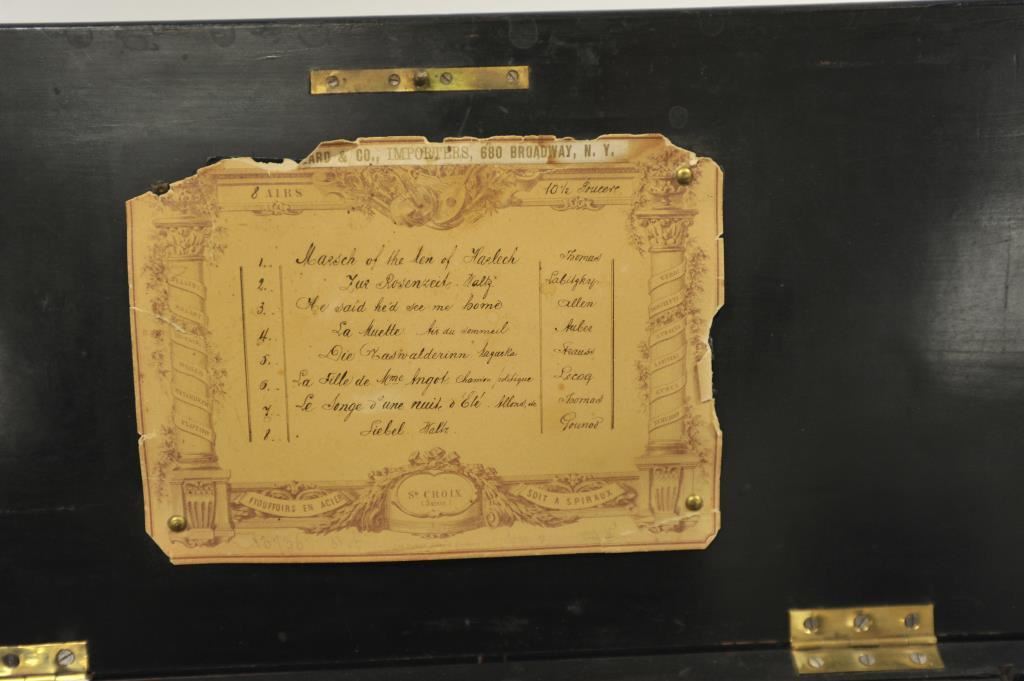 ARD & CO., IMPORTERS, 680 BROADWAY, N. Y.
8 AIRS 10½
1.. Marsch of the Men of Harlech Thomas
2.. Zur Rosenzeit. Waltz Labitzky.
3.. He said he'd see me home Allen
4. La Muette Air du Sommeil Auber
5. Die Strauss
6.. La Fille de Mme Angot. Chanson politique Lecoq
7.. Le Songe d'une nuit d'Été. Allons, de Thomas
8.. Siebel Waltz. Gounod
ETOUFFOIRS EN ACIER Ste CROIX SOIT A SPIRAUX
(Suisse)